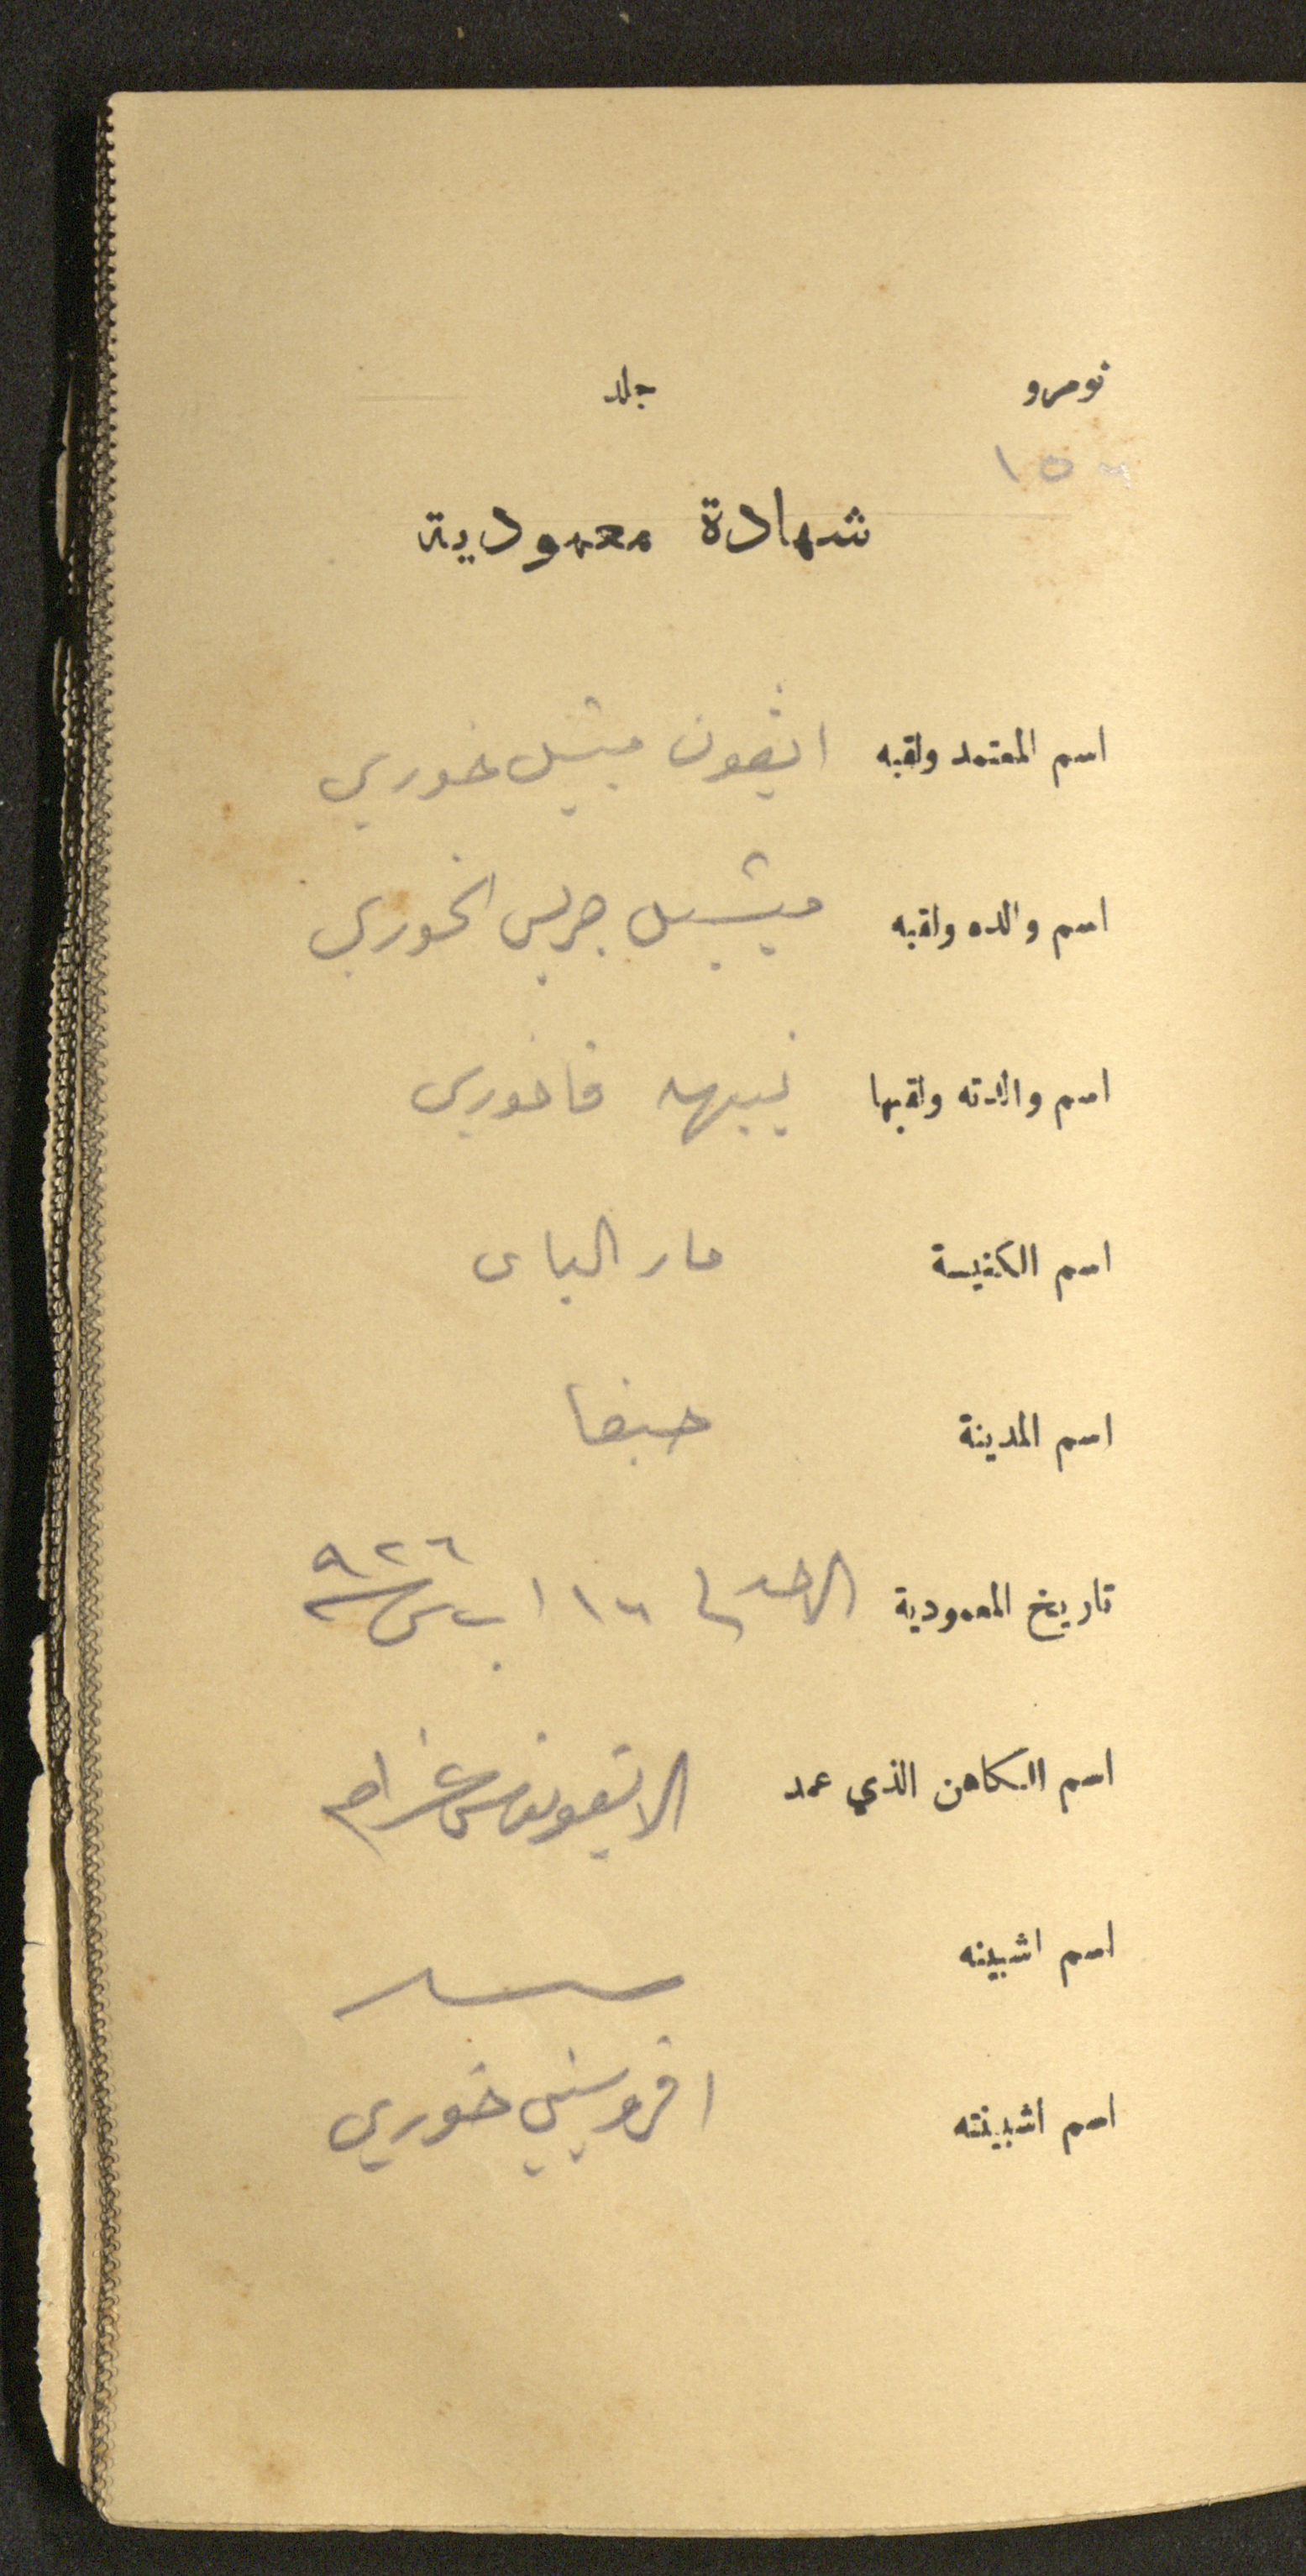 نومرو جلد
١٥٦
شهادة معمودية
اسم المعتمد ولقبه ايفون ميشيل خوري
اسم والده ولقبه ميشيل جريس الخوري
اسم والدته ولقبها نبيهه فاخوري
اسم الكنيسة مار الياس
اسم المدينة حيفا
تاريخ المعمودية الاحد في ١٦ اب سنة ٩٢٦
اسم الكاهن الذي عمد
اسم اشبينه
اسم اشبينته افروسيني خوري